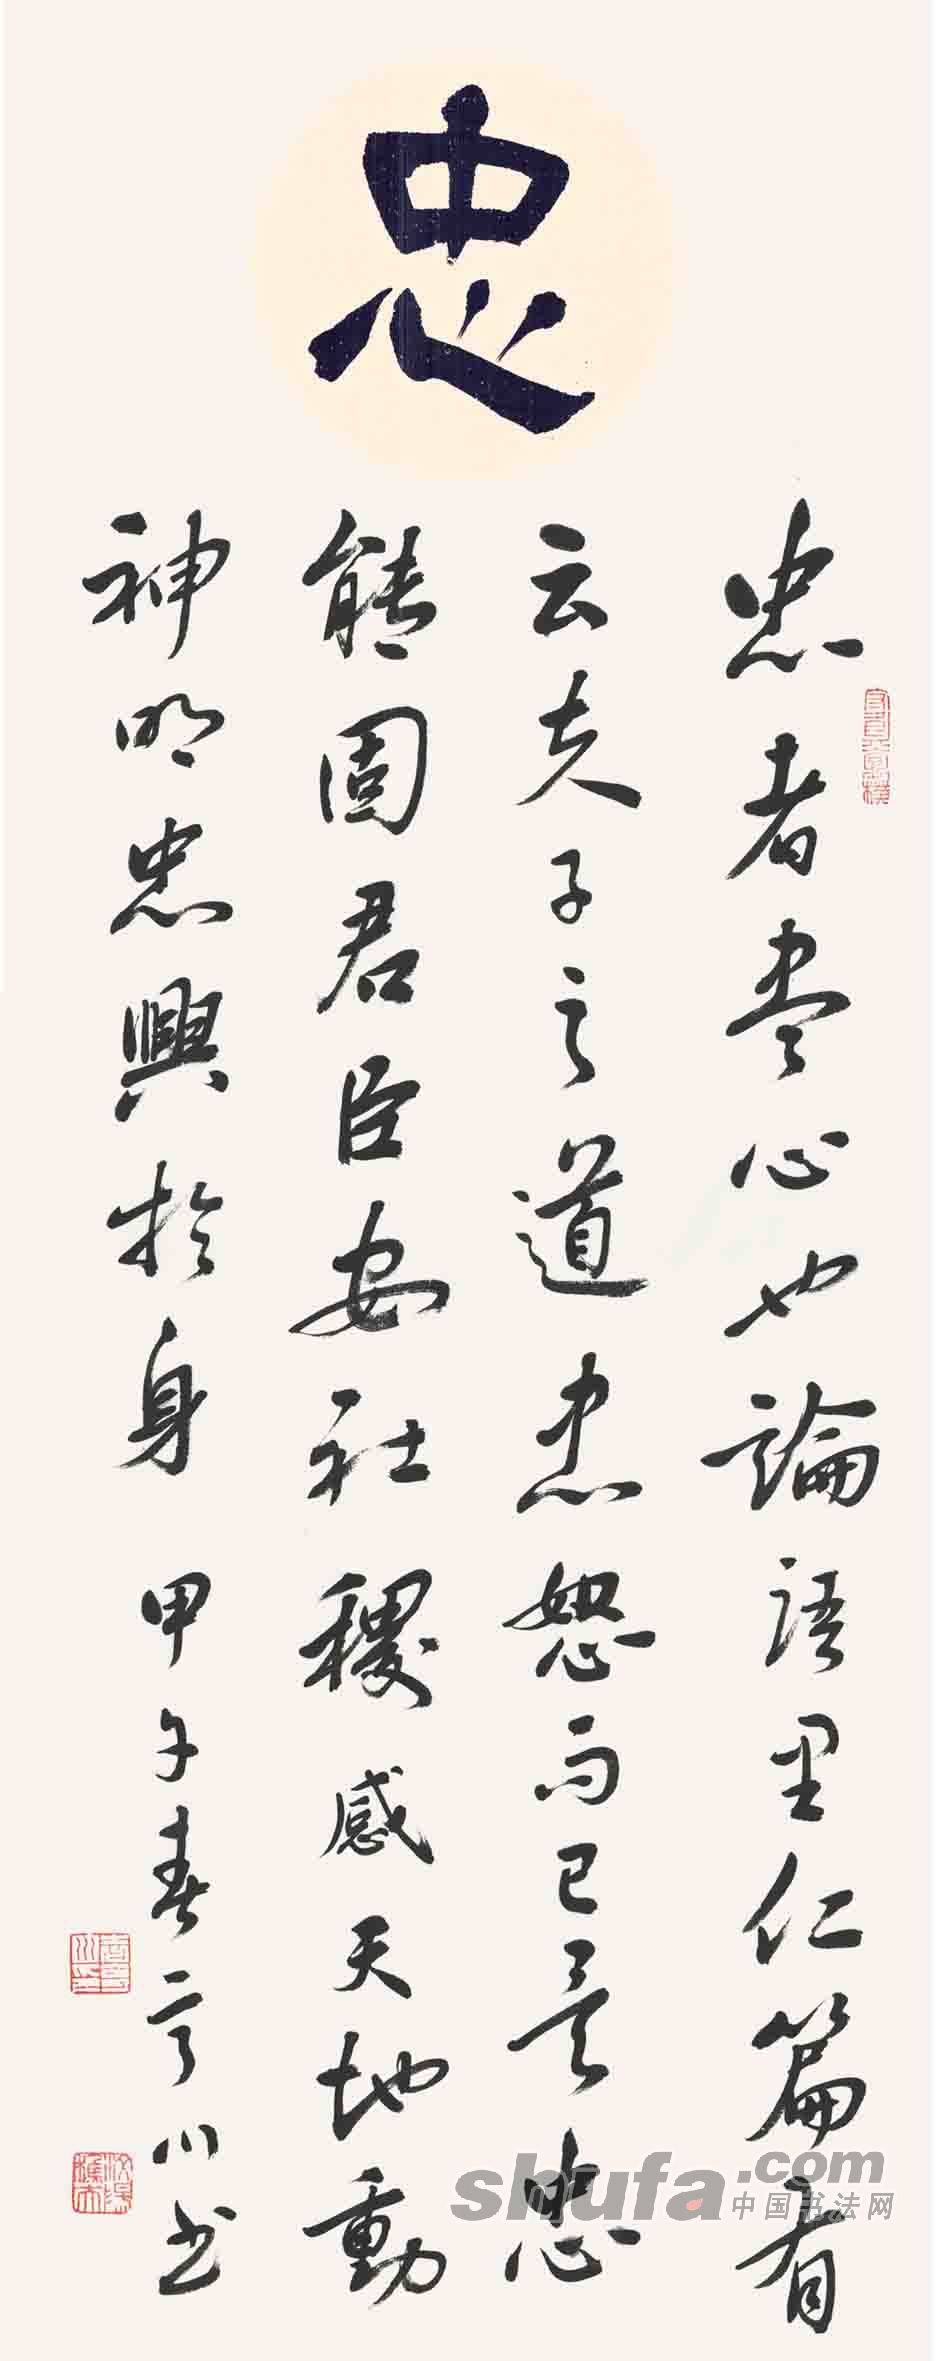 忠
忠者尽心也論語里仁篇有
云夫子之道忠恕而已矣忠
能固君臣安社稷感天地動
神明忠興於身
甲午春亨川书
shufa.com
中国书法网